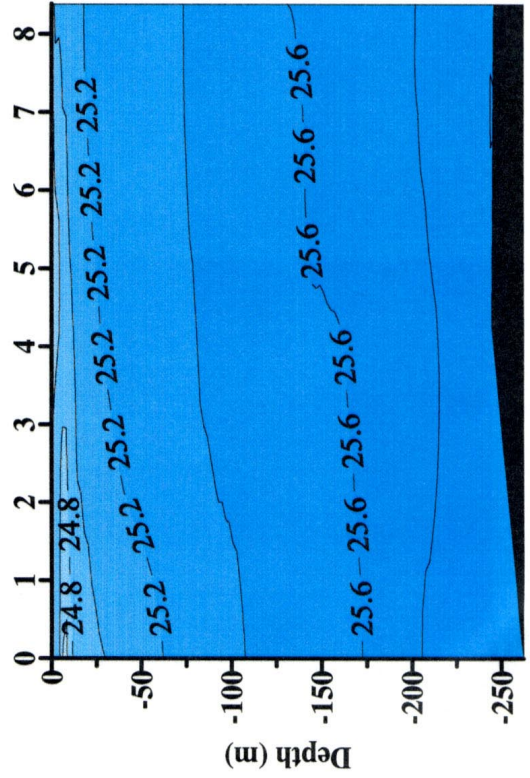 0 1 2 3 4 5 6 7 8
0
-50
-100
-150
-200
-250
Depth (m)
24.8 24.8
25.2 25.2 25.2 25.2 25.2 25.2 25.2
25.6 25.6 25.6 25.6 25.6 25.6 25.6